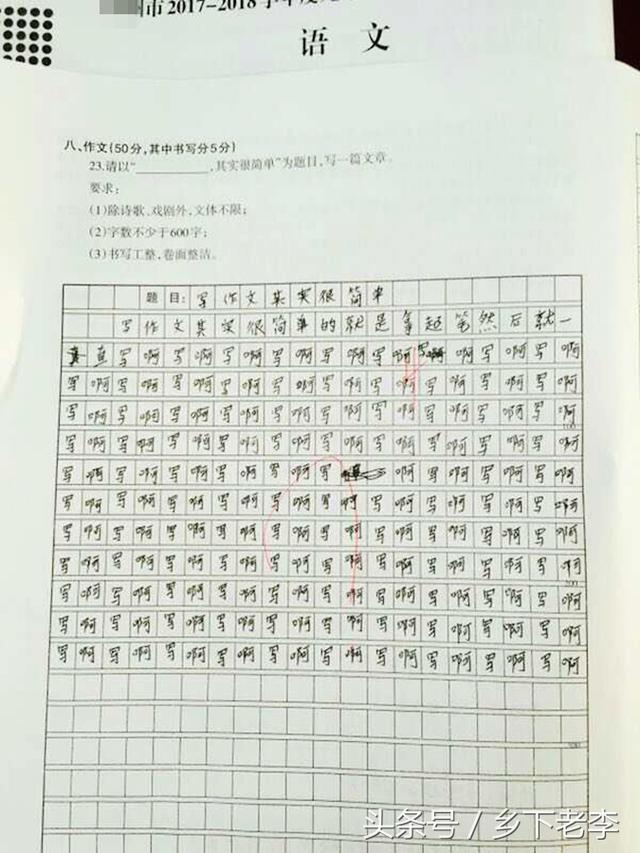 市2017-2018学年度
语 文
八、作文(50分,其中书写分5分)
23.请以“__________,其实很简单”为题目,写一篇文章。
要求:
(1)除诗歌、戏剧外,文体不限;
(2)字数不少于600字;
(3)书写工整,卷面整洁。
题目:写作文其实很简单
写作文其实很简单的就是拿起笔然后就一
直写啊写啊写啊写啊写啊写啊写啊啊写啊写啊
写啊写啊写啊写啊写啊写啊写啊写啊写啊写啊
写啊写啊写啊写啊写啊写啊写啊写啊写啊写啊
写啊写啊写啊写啊写啊写啊写啊写啊写啊写啊
写啊写啊写啊写啊写啊写啊写啊写啊写啊
写啊写啊写啊写啊写啊写啊写啊写啊写啊写啊
写啊写啊写啊写啊写啊写啊写啊写啊写啊写啊
写啊写啊写啊写啊写啊写啊写啊写啊写啊写啊
写啊写啊写啊写啊写啊写啊写啊写啊写啊写啊
写啊写啊写啊写啊写啊写啊写啊写啊写啊写啊
写啊写啊写啊写啊写啊写啊写啊写啊写啊写啊
头条号 / 乡下老李